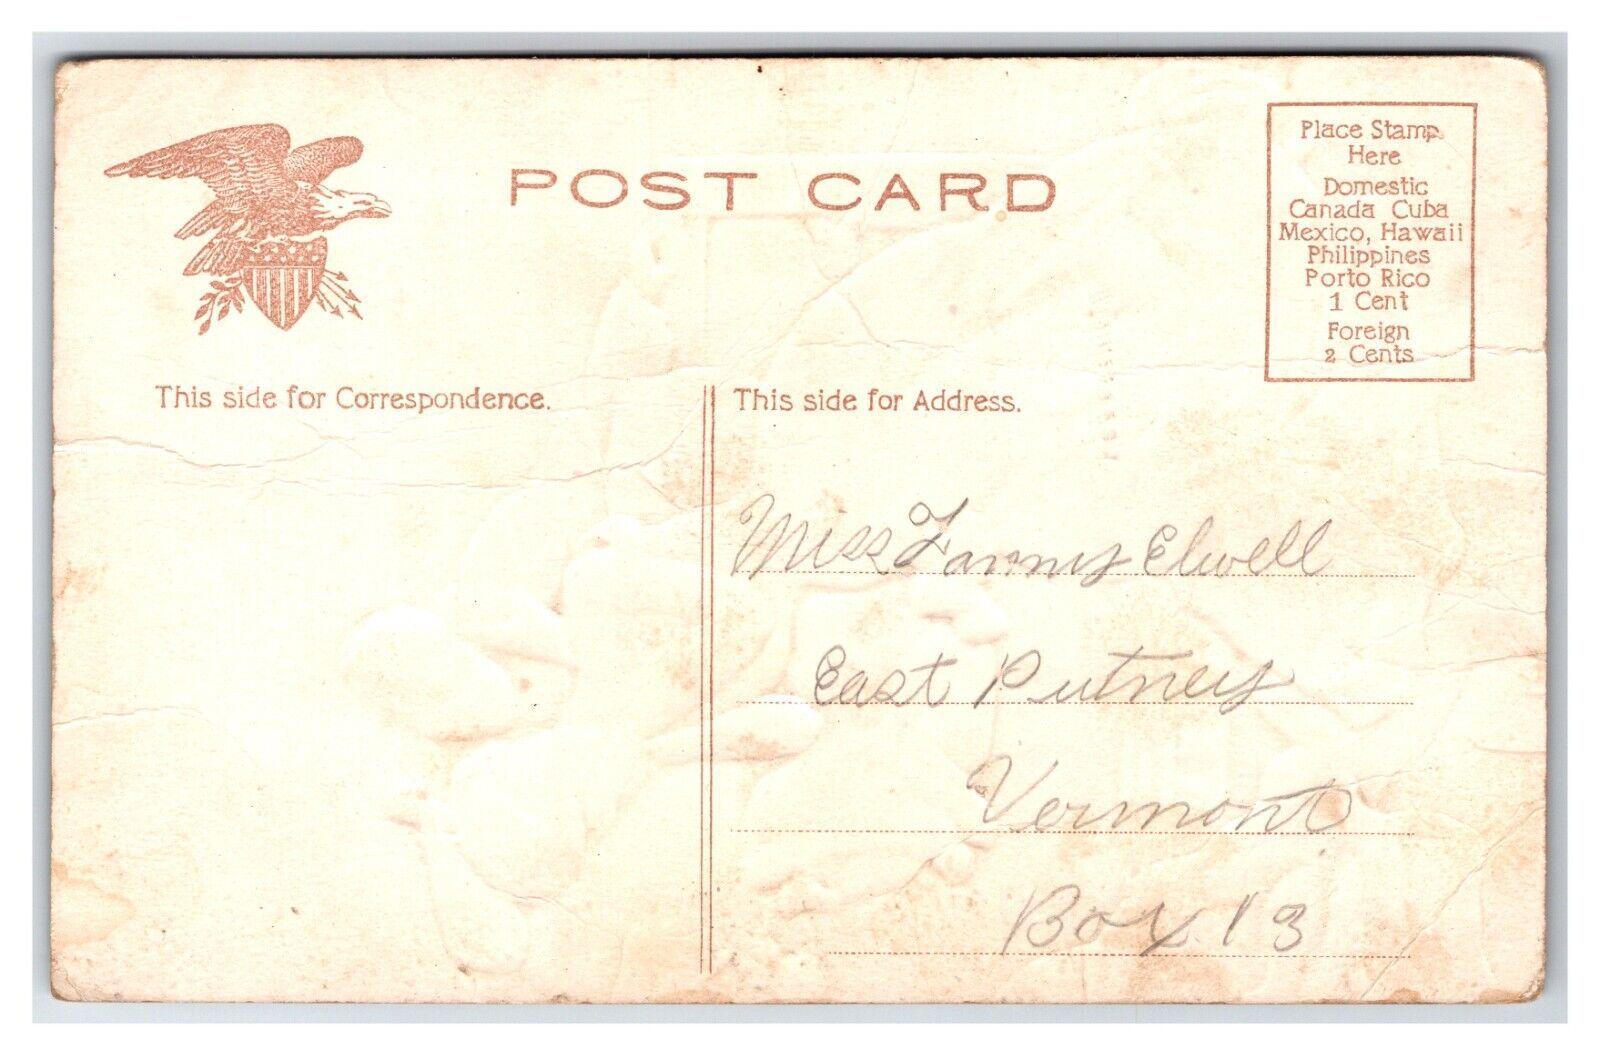 POST CARD
Place Stamp
Here
Domestic
Canada Cuba
Mexico, Hawaii
Philippines
Porto Rico
1 Cent
Foreign
2 Cents
This side for Correspondence.
This side for Address.
Miss Fanny Elwell
East Putney
Vermont
Box 13